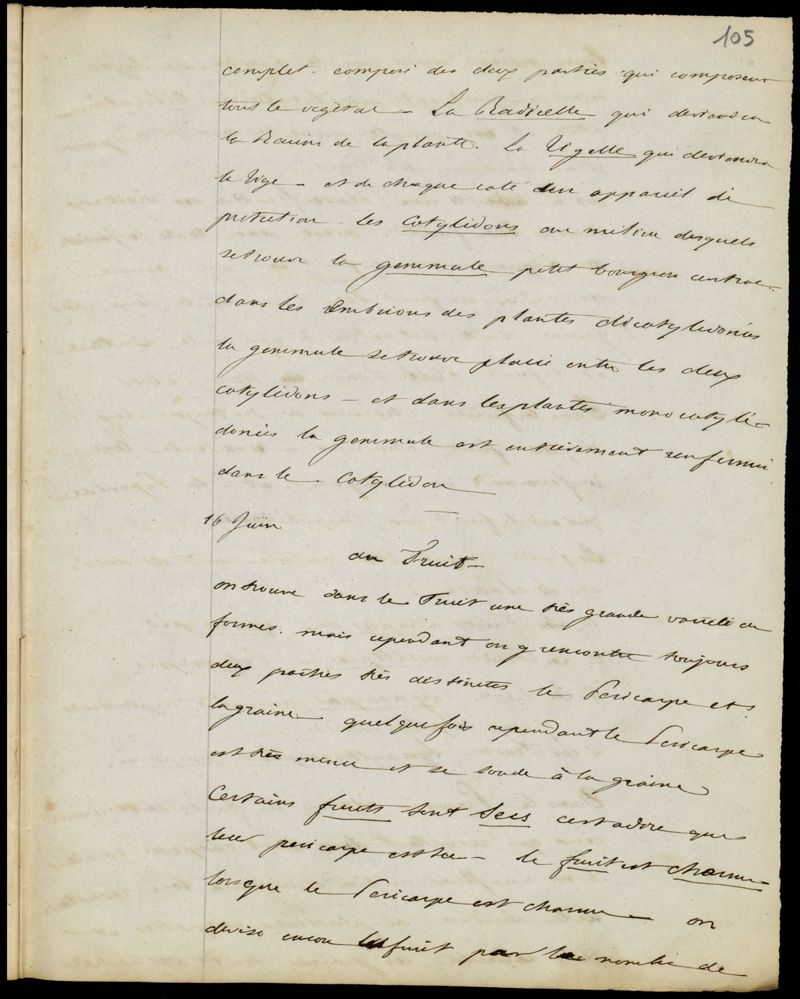 105
complet. composé des deux parties qui composent
tout le végétal - La Radicelle qui deviendra
la Racine de la plante. La Tigelle qui deviendra
la Tige - et de chaque coté un appareil de
protection. les Cotylédons au milieu desquels
se trouve la gemmule petit bourgeon central.
dans les embrions des plantes dicotylédonées
la gemmule se trouve placée entre les deux
cotylédons - et dans les plantes monocotylé-
donées la gemmule est entièrement renfermée
dans le Cotylédon
16 Juin
du Fruit -
on trouve dans le Fruit une très grande variété de
formes. mais cependant on y rencontre toujours
deux parties très distinctes le Péricarpe et
la graine quelquefois cependant le Péricarpe
est très mince et se soude à la graine
Certains fruits sont secs cestadire que
leur péricarpe est sec - le fruit est charnu -
lorsque le Péricarpe est charnu - on
divise encore les fruit par le nombre de